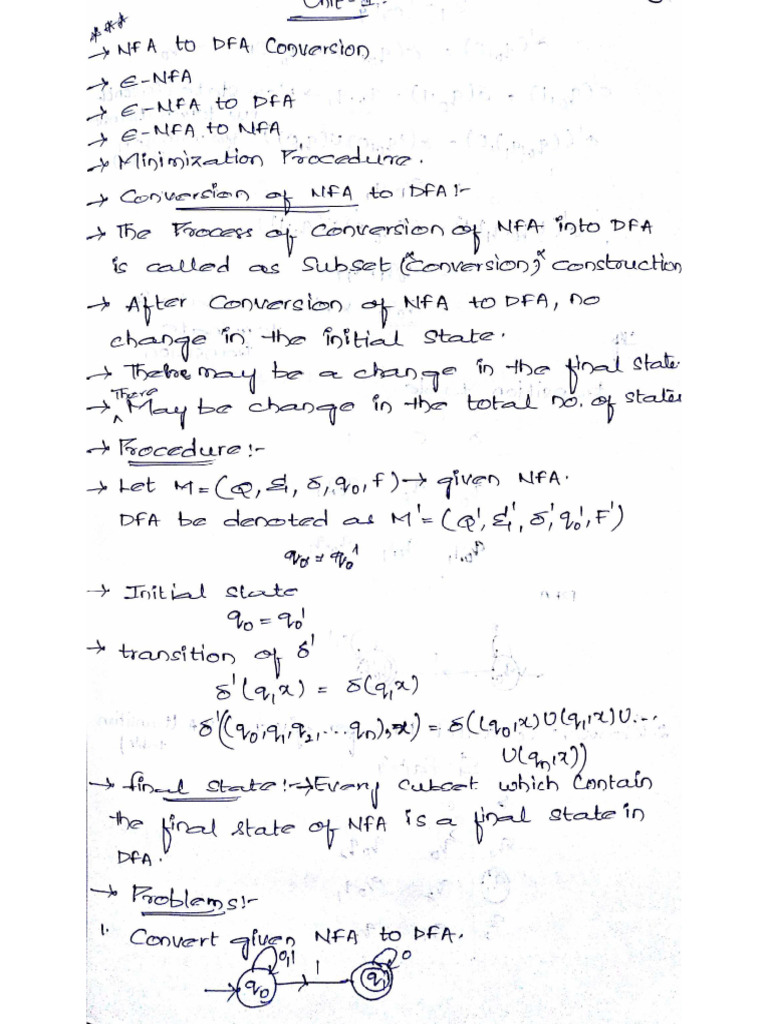 Unit-2
***
→ NFA to DFA Conversion
→ ε-NFA
→ ε-NFA to DFA
→ ε-NFA to NFA
→ Minimization Procedure.
→ Conversion of NFA to DFA:-
→ The Process of conversion of NFA into DFA
is called as Subset (conversion) construction
→ After conversion of NFA to DFA, no
change in the initial state.
→ There may be a change in the final state.
→ There May be change in the total no. of states
→ Procedure:-
→ Let M = (Q, Σ, δ, q0, F) → given NFA.
DFA be denoted as M' = (Q', Σ', δ', q0', F')
q0 = q0'
→ Initial state
q0 = q0'
→ transition of δ'
δ'(q,x) = δ(q,x)
δ'((q0,q1,q2,...qn),x) = δ((q0,x)U(q1,x)U...
U(qn,x))
→ final state:→ Every subset which contain
the final state of NFA is a final state in
DFA.
→ Problems:-
1. Convert given NFA to DFA.
0,1
0
1
q0
q1